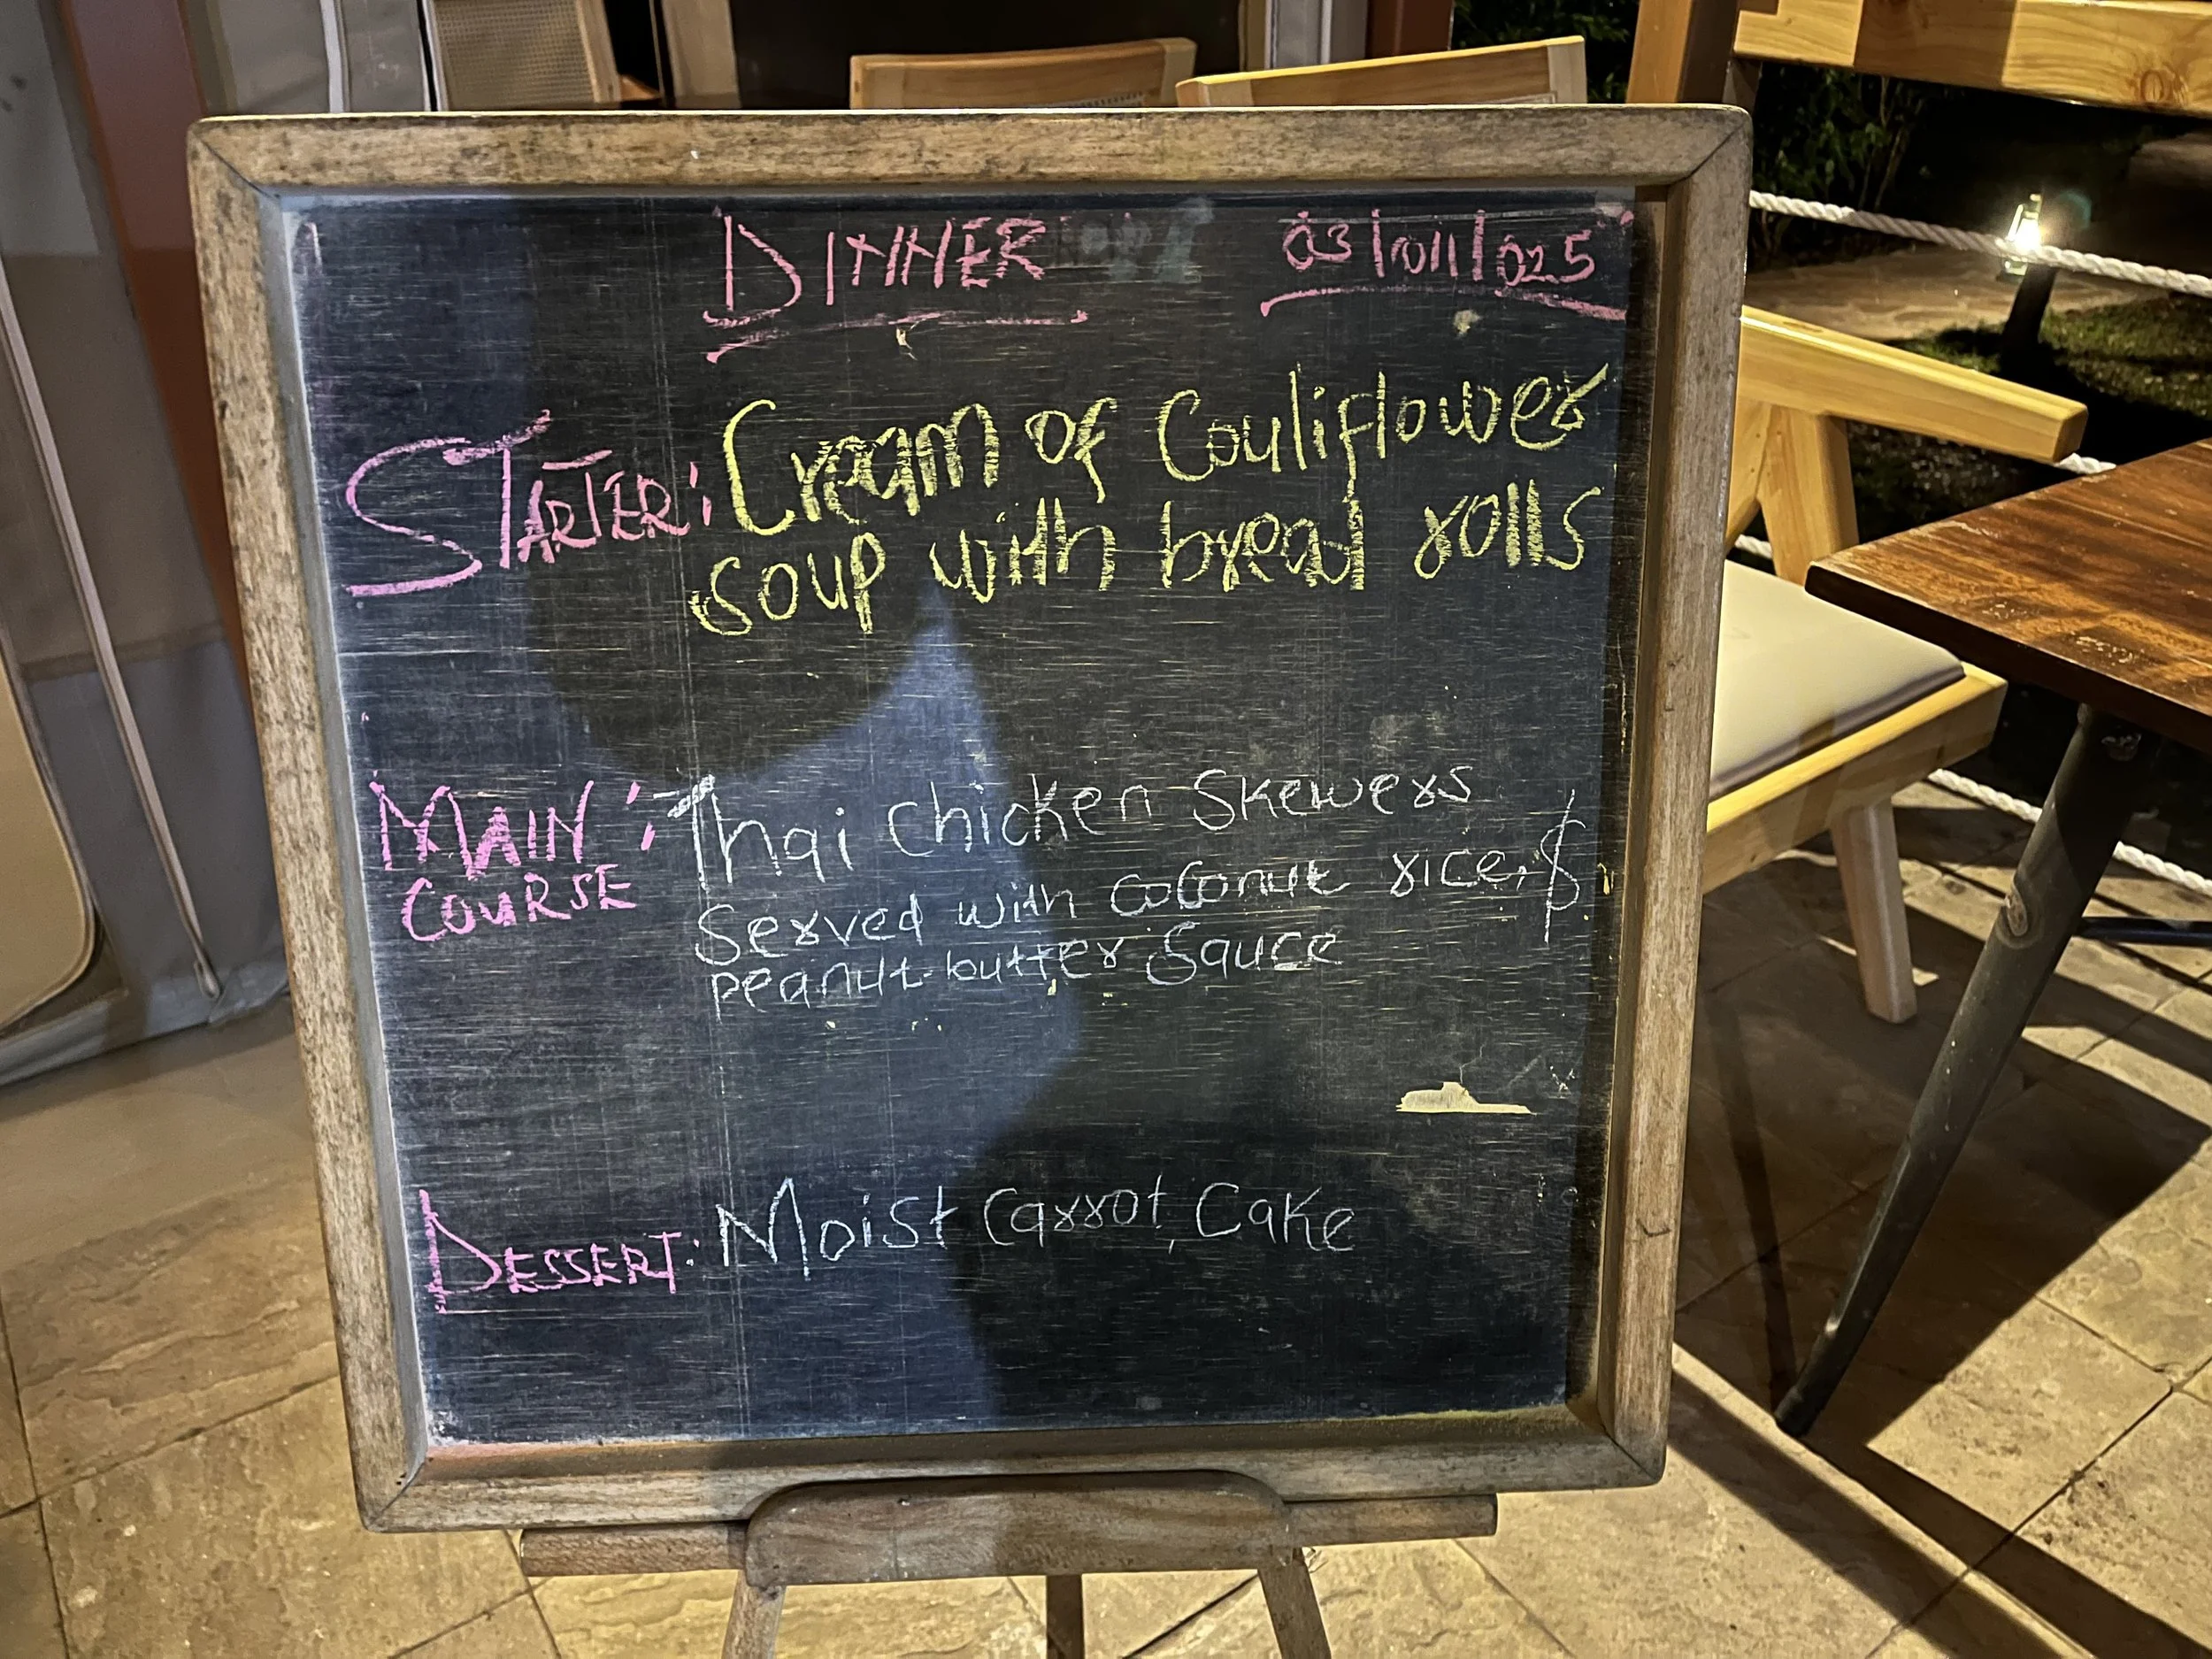 DINNER 03/011/025
STARTER: Cream of Couliflower
soup with bread rolls
MAIN : Thai chicken Skewers
COURSE Served with coconut rice, $
peanut-butter Sauce
DESSERT: Moist Carrot Cake